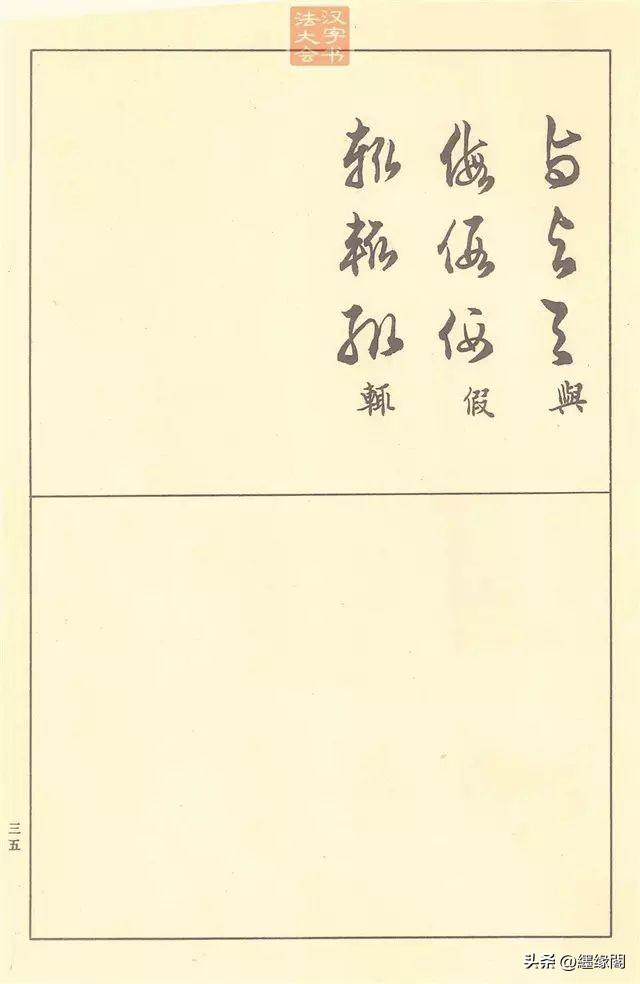 汉字书
法大会
與
假
輒
三五
头条 @纆缘閣